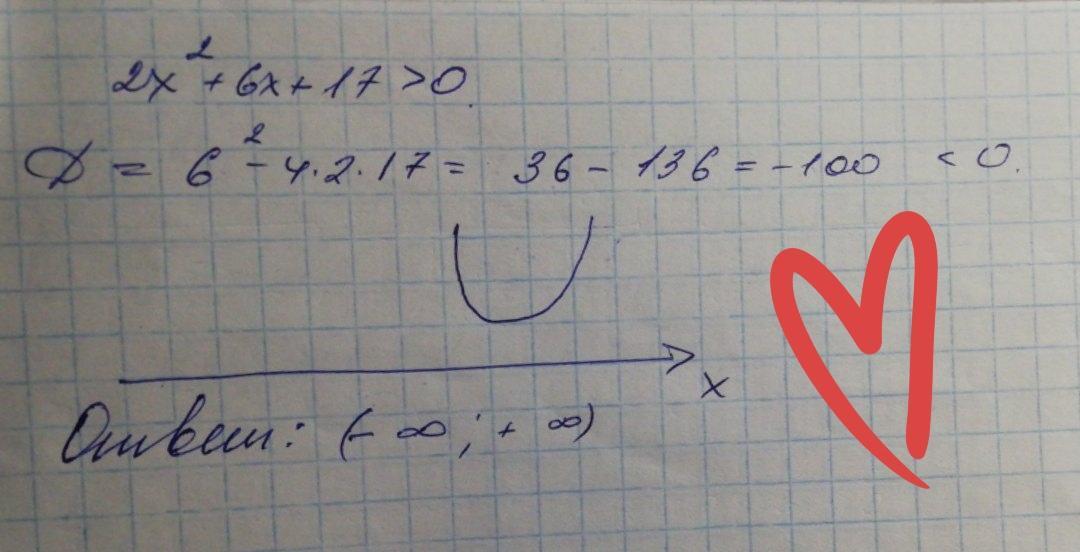 2x²+6x+17>0.
D = 6²-4·2·17 = 36 - 136 = -100 < 0.
x
Ответ: (-∞; +∞)